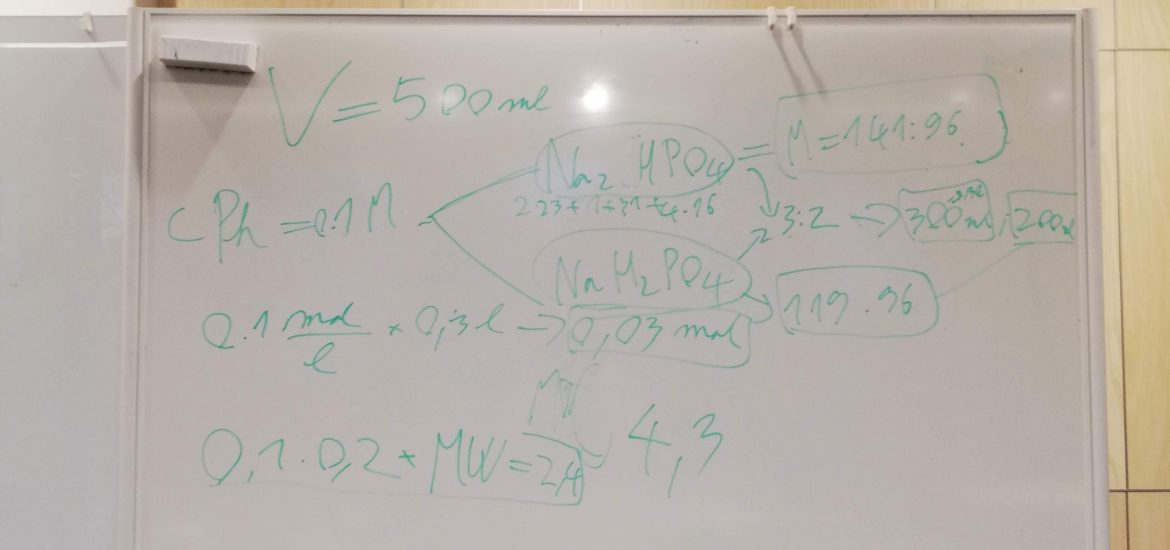 V = 500 ml
Na₂ HPO₄ = M = 141.96
2·23+1+31+4·16
C Ph = 0.1 M
3:2 → 300 ml, 200
Na H₂PO₄
119.96
0.1 mol/l × 0,3 l → 0,03 mol
MW
0,1 · 0,2 * MW = 2,4
4,3